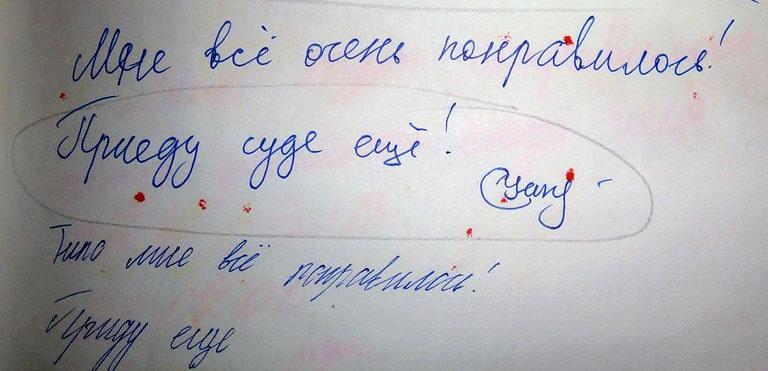 Мне всё очень понравилось!
Приеду суде ещё!
Типо мне всё понравилось!
Приду еще